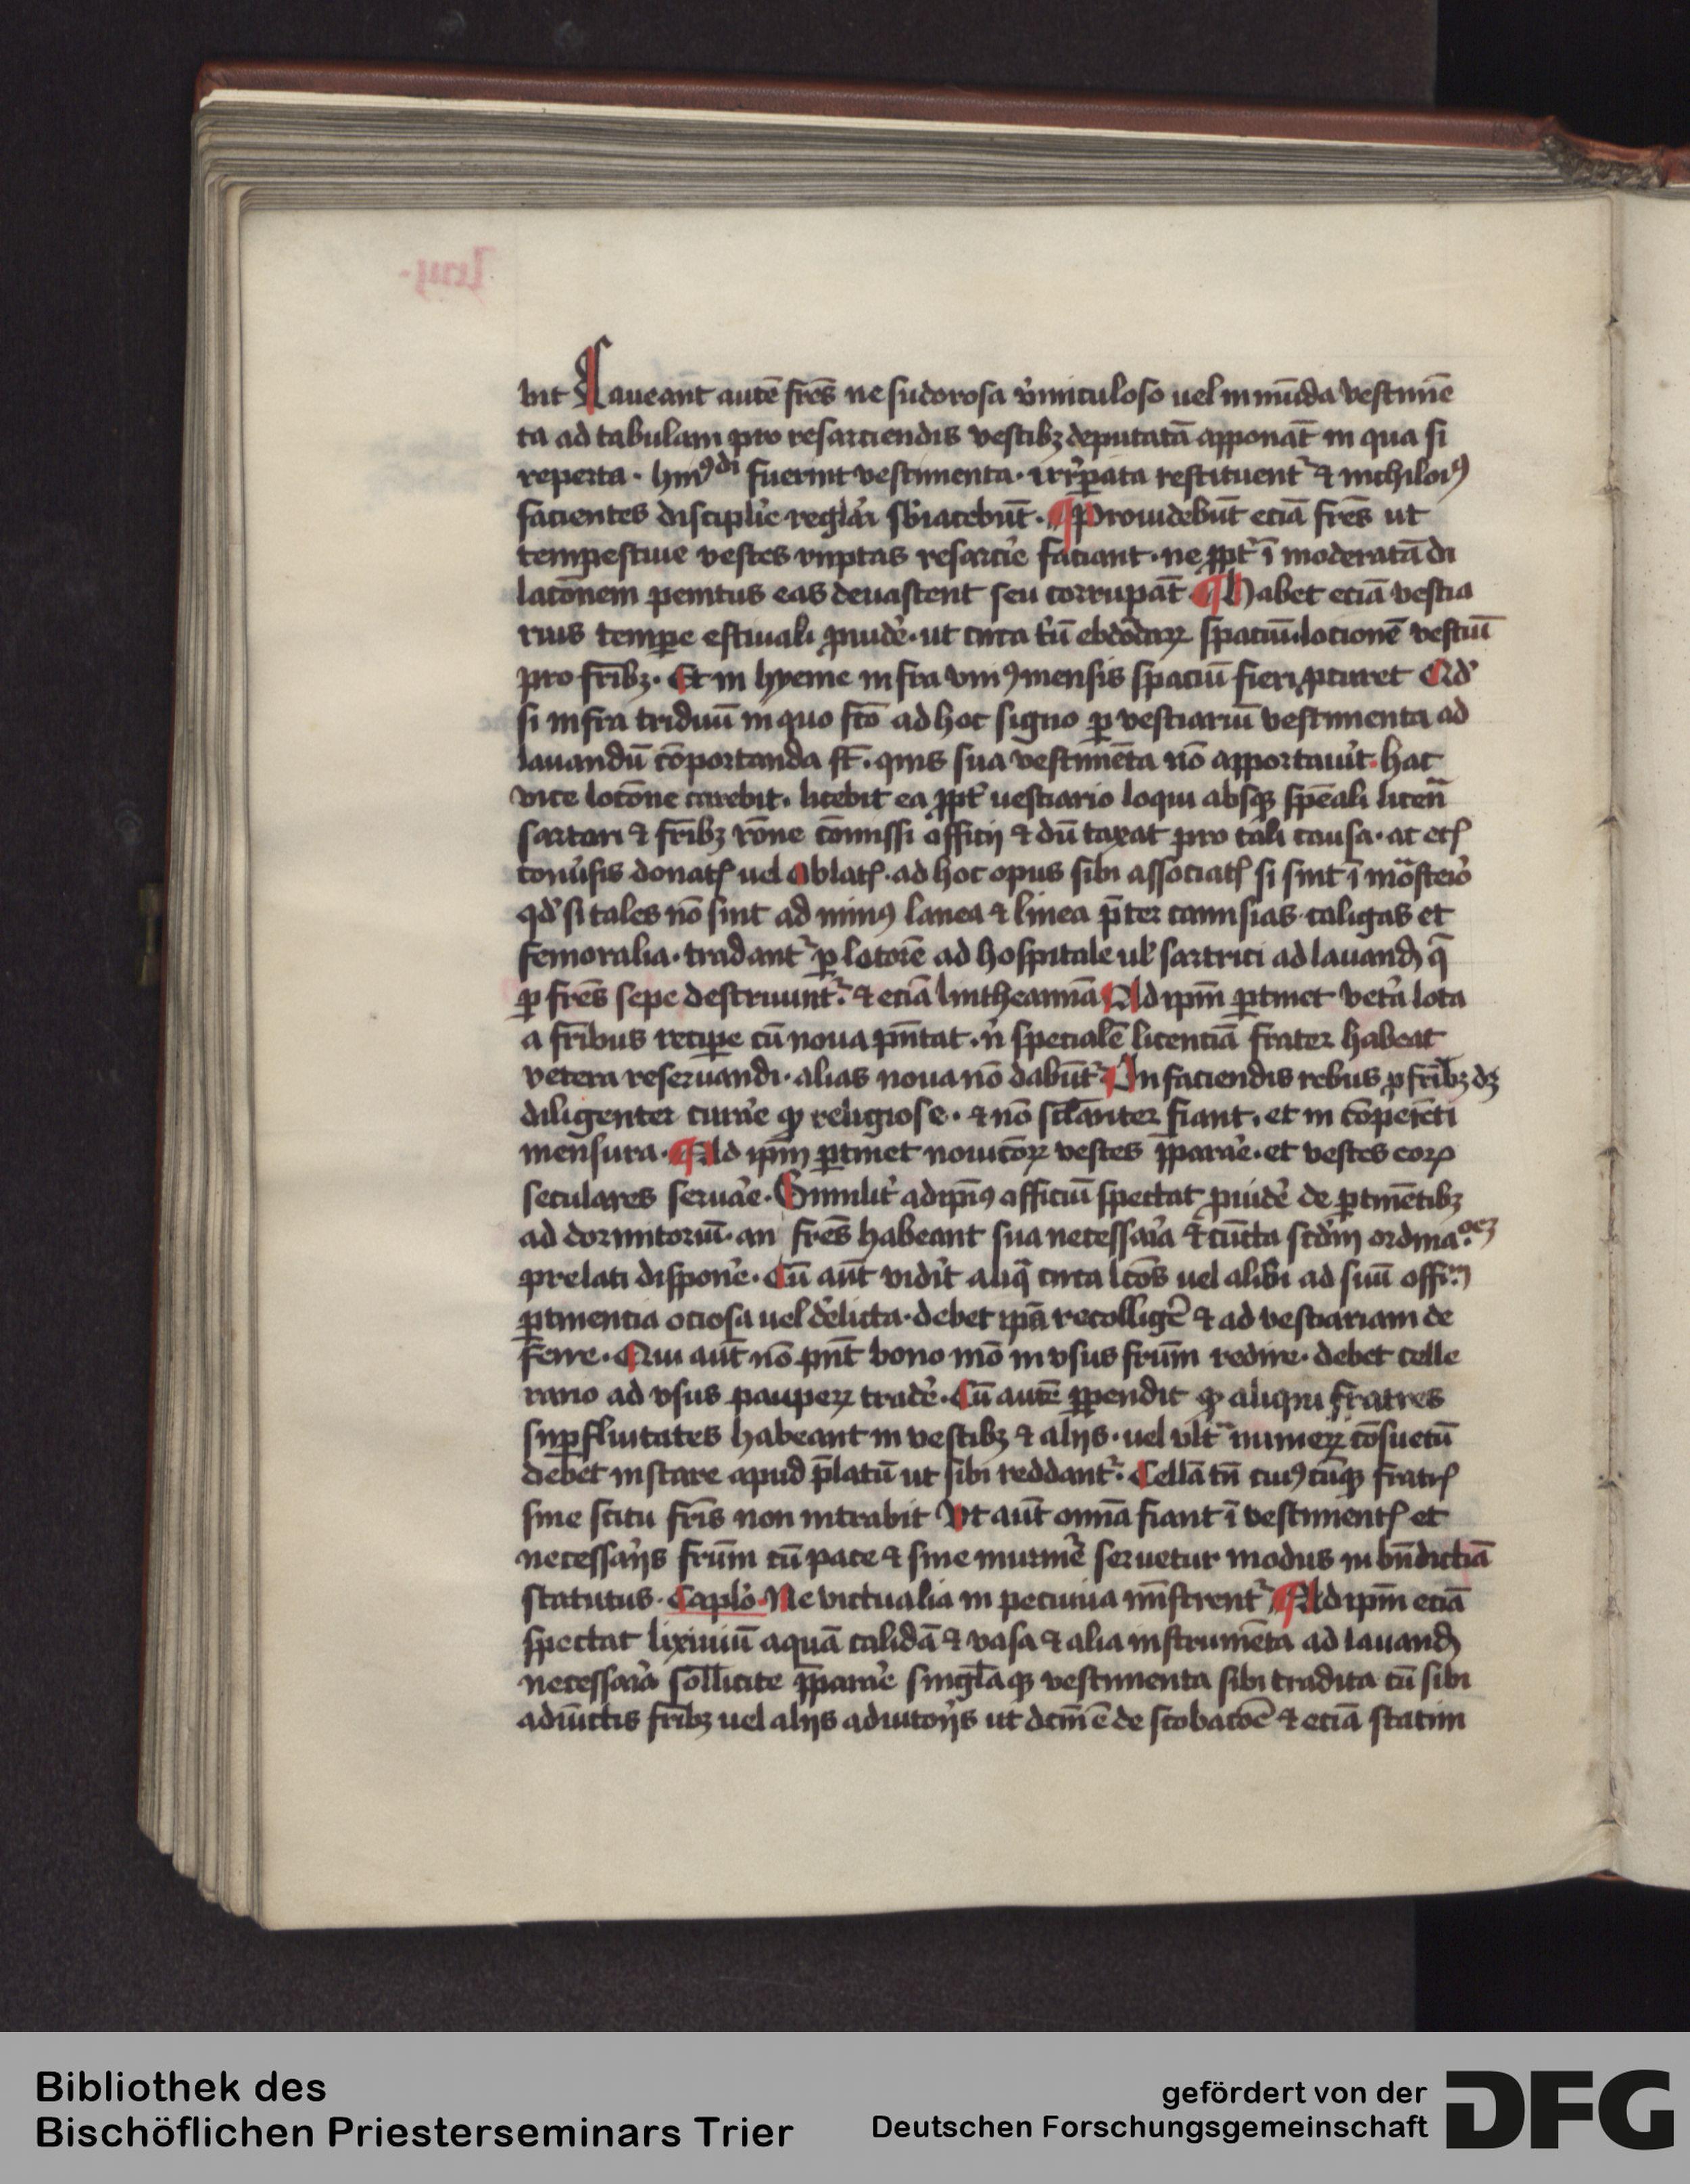 bit Caueant autē fr̄es ne sudorosa v̓miculoso uel inmūda vestimē
ta ad tabulam pro resarciendis vestibꝫ deputatā apponāt in qua si
reperta · hui⁹di fuerint vestimenta · irrꝑata restituent᷑ & nichilōi⁹
facientes discipli̓e regla̓i sb̓iacebūt · ¶ Prouidebūt eciā fr̄es ut
tempestiue vestes ruptas resarcir̓e faciant · ne ꝓpt̓ ī moderatā di
lacōnem penitus eas deuastent seu corrupāt ¶ Habet eciā vestia
rius temꝑe estiuali ꝓuide̓ · ut circa t̓ū ebdōdaꝝ spaciū · locionē vestiū
pro fr̄ibꝫ · Et in hyeme infra vni⁹ mensis spaciū fieri ꝓcuret Qd̓
si infra triduū in quo fcō ad hoc signo ꝑ vestiariū vestimenta ad
lauandū cōportanda st̄ · quis sua vestimēta nō apportaui̓t · hac
vice locōne carebit · licebit ea ꝓpt̓ uestiario loqui absqꝫ sp̄eali licen̄
sartori & fr̄ibꝫ rōne cōmissi officij & dū taxat pro tali causa · ac etꝭ
conu̓sis donatꝭ uel oblatꝭ · ad hoc opus sibi associatꝭ si sint ī mōasteīo
qd̓ si tales nō sint ad min⁹ lanea & linea p̄ter camisias caligas et
femoralia · tradant᷑ ꝑ lotorē ad hospitale ul̓ sartrici ad lauand̓ q̄
ꝑ fr̄es sepe destruunt᷑ · & eciā lintheamīa Ad ip̄m ꝑtinet vet̓a lota
a fr̄ibus reciꝑe cū noua p̄ntat · n̓ specialē licenciā frater habeat
vetera reseruandi · alias noua nō dabūt᷑ In faciendis rebus ꝓ fr̄ibꝫ dꝫ
diligenter cura̓e qꝫ religiose · & nō sclānter fiant · et in cōpetēti
mensura · ¶ Ad ip̄m ꝑtinet nouicōꝝ vestes p̄para̓e · et vestes eoꝝ
seculares serua̓e · Similit̓ ad ip̄i⁹ officiū spectat ꝓuide̓ de ꝑtinētibꝫ
ad dormitoriū · an fr̄es habeant sua necessa̓ia & cūcta scd̓m ordina.oeꝫ
prelati dispone̓ · Cū aūt vidi̓t aliq̄ circa lcōs uel alibi ad suū offi.m
ꝑtinencia ociosa uel de̓licta · debet ip̄a recollige̓ & ad vestiariam de
ferre · Qui aūt nō pn̄t bono mō in vsus fr̄um redire · debet celle
rario ad vsus pauperꝝ trade̓ · Cū autē ꝑpendit qꝫ aliqui fratres
suꝑfluitates habeant in vestibꝫ & alijs · uel vlt̓ numerꝝ cōsuetū
debet instare apud p̄latū ut sibi reddant᷑ · Cellā tn̄ cui⁹cūqꝫ fratrꝭ
sine scitu fr̄is non intrabit Vt aūt om̄ia fiant ī vestimentꝭ et
necessa̓ijs fr̄um cū pace & sine murme̓ seruetur modus in bn̄dictiā
statutus · Caplo̓ · Ne victualia in pecunia mīstrent᷑ ¶ Ad ip̄m eciā
spectat lixiuiū aquā calidā & vasa & alia instrumēta ad lauand̓
necessa̓ia sollicite p̄para̓e singlāqꝫ vestimenta sibi tradita cū sibi
adiūctis fr̄ibꝫ uel alijs adiuto̓ijs ut dcm̄ ē de scobacōe & eciā statim
Bibliothek des
Bischöflichen Priesterseminars Trier
gefördert von der
Deutschen Forschungsgemeinschaft
DFG